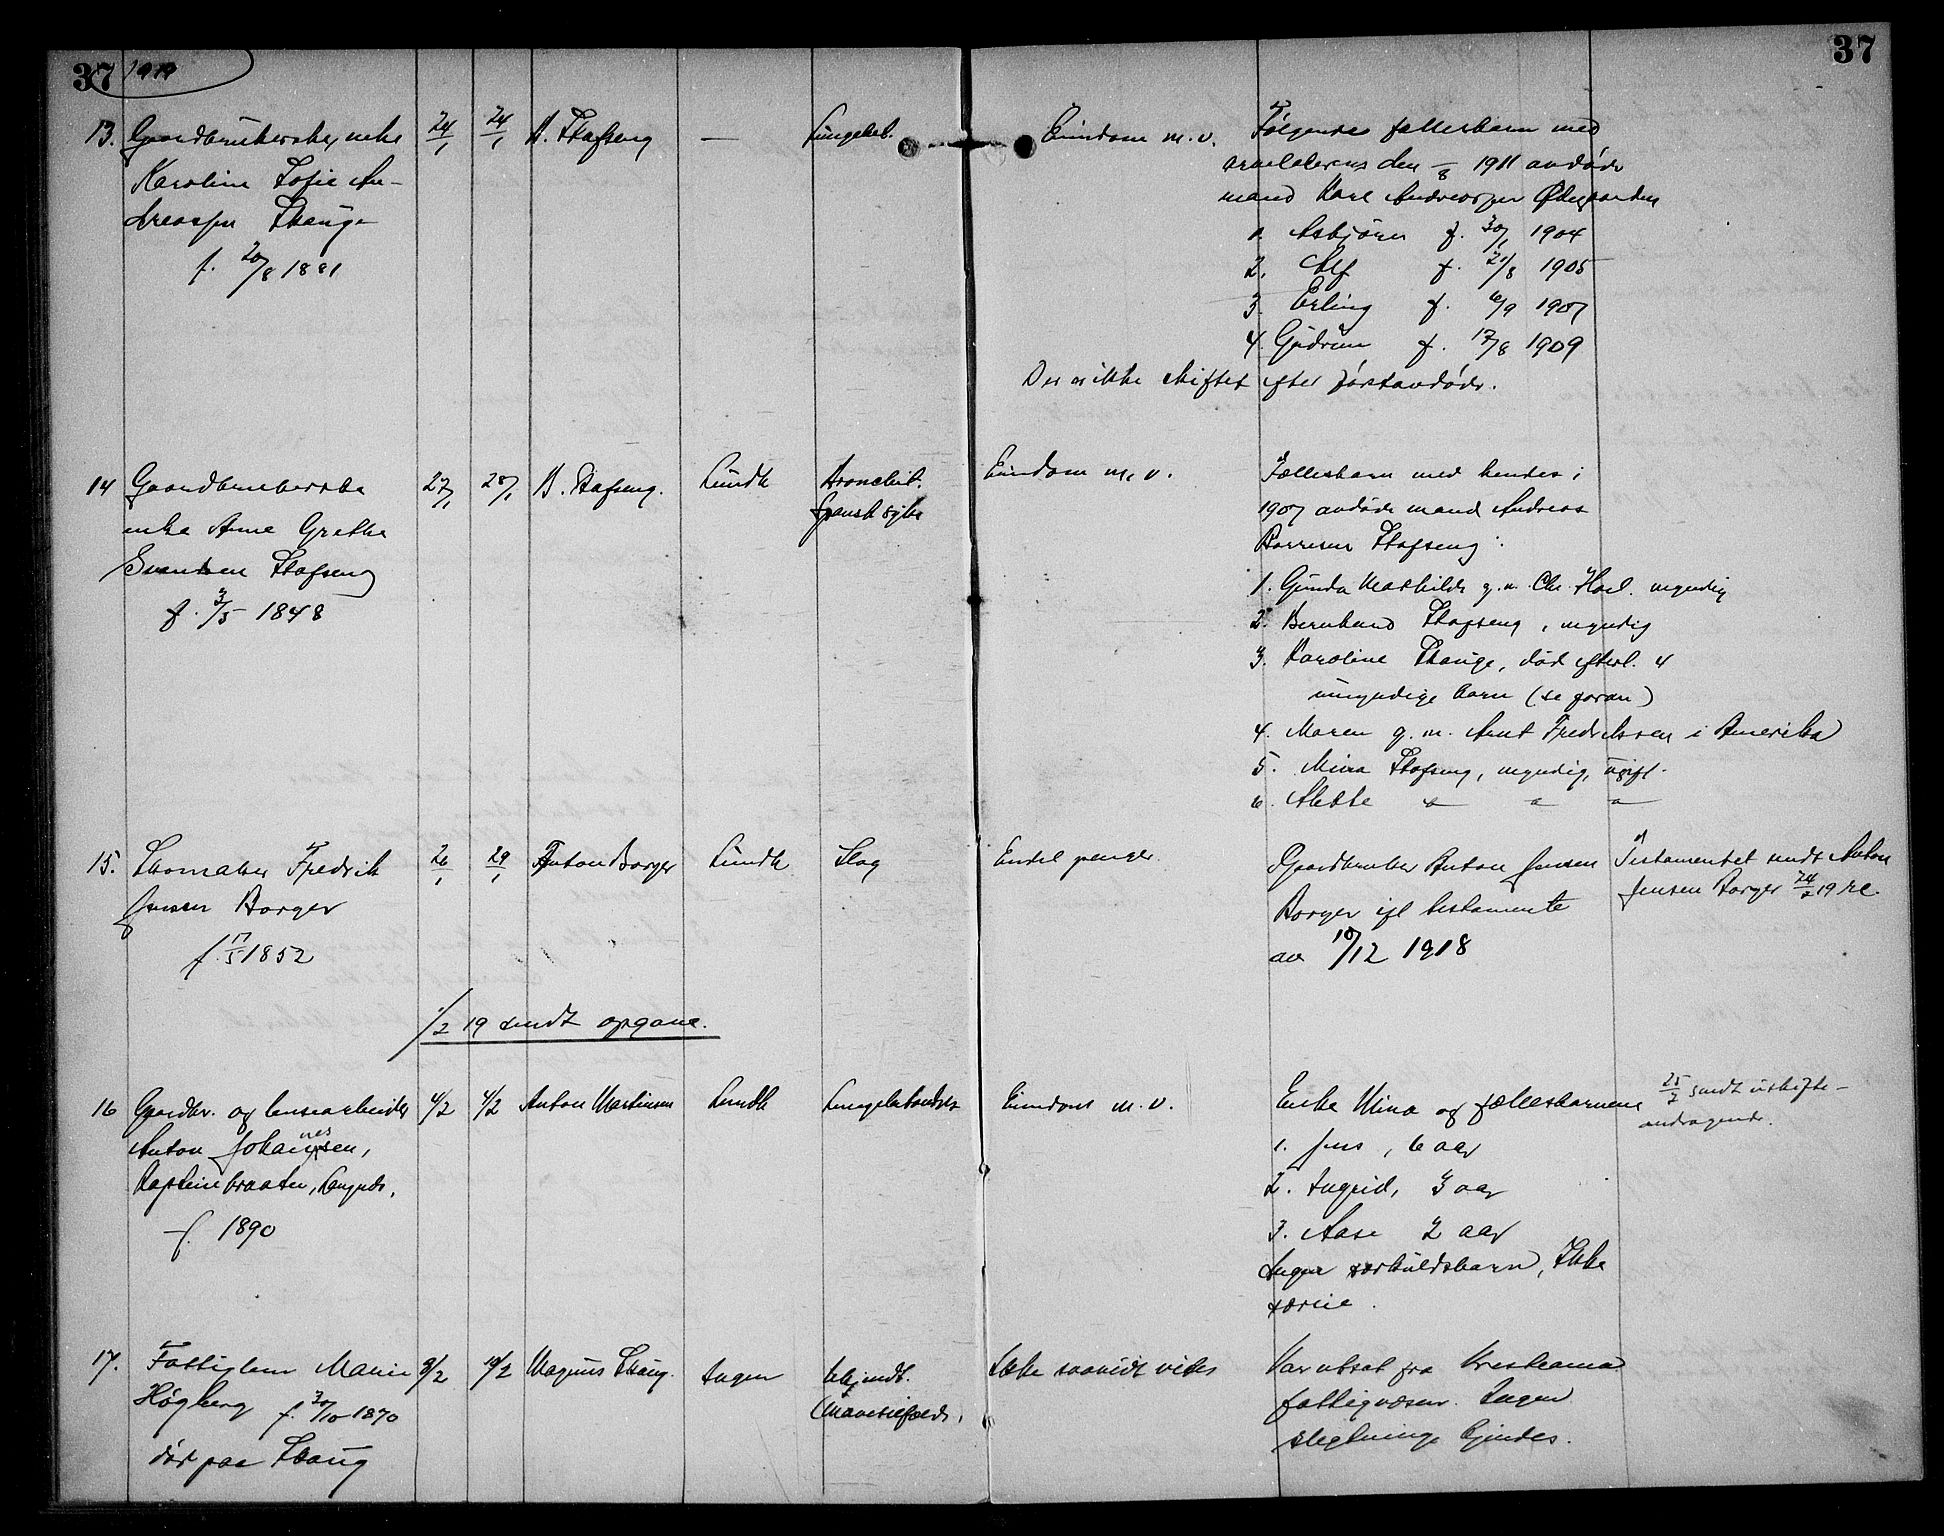 37 1919 37
13. Gaardbrukerske, enke 24/1 24/1 B. Skofseng — Lungebet. Eiendom m. v. Følgende fællesbarn med
Karoline Sofie An- arveladerens den /8 1911 avdøde
dreassen Skauge mand Karl Andreassen Ødegaarden
f. 20/8 1881 1. Asbjørn f. 30/1 1904
2. Alf f. 21/8 1905
3. Erling f. 6/9 1907
4. Gudrun f. 17/8 1909
Der er ikke skiftet efter førstavdøde.
14 Gaardbrukerske 27/1 28/1 B. Skofseng. Sundh Bronchit. Eiendom m. v. Fællesbarn med hendes i
enke Anne Grethe spansk syke 1907 avdøde mand Andreas
Svendsen Skofseng Borresen Skofseng:
f. 3/5 1848 1. Gunda Mathilde g. m. Chr. Hoel. myndig
2. Bernhard Skofseng, myndig
3. Karoline Skauge, død efterl. 4
umyndige barn (se foran)
4. Maren g. m. Arnt Fredriksen i Amerika
5. Mina Skofseng, myndig, ugift.
6. Alette " " "
15. Fredrik 26/1 29/1 Anton Borger Sundh Slag Endel penger. Gaardbruker Anton Jensen Testamentet sendt Anton
Jensen Borger Borger ifl testamente Jensen Borger 24/2 19 re.
f. 17/5 1852 av 10/12 1918
1/2 19 sendt opgave.
16 Gaardbr. og lensearbeider 4/2 4/2 Anton Martinsen Sundh Lungebetændelse Eiendom m. v. Enke Mina og fællesbarnene 25/2 sendt uskifte-
Anton Johannessen, 1. Jens, 6 aar andragende.
Kapteinbraaten, 2. Ingrid, 3 aar
f. 1890 3. Aase 2 aar
Ingen særkuldsbarn, Ikke
særeie.
17. Fattiglem Marie 9/2 10/2 Magnus Skaug. Ingen Ubejendt. Ikke saavidt vites Var utsat fra Kristiania
Høgberg f. 30/10 1870 (Mavetilfælde) fattigvæsen. Ingen
død paa Skaug slegtninge kjendes.